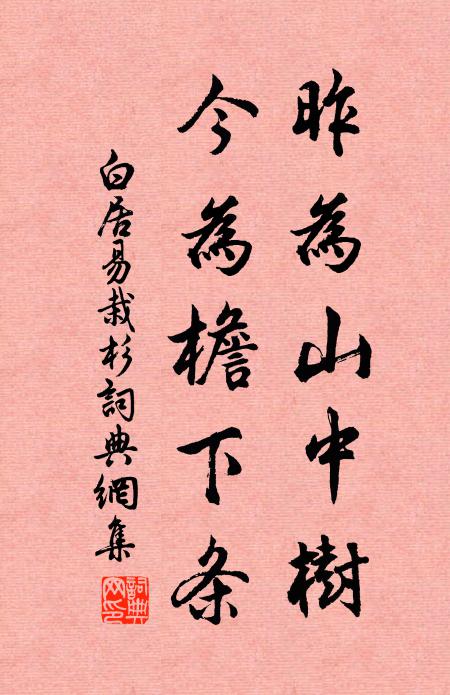 昨為山中樹
今為檐下条
白居易栽杉詞典網集
詞典網印